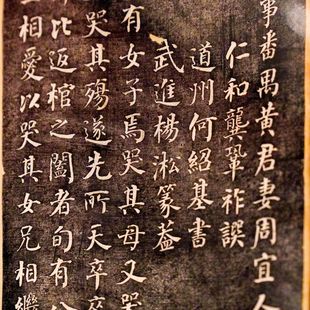 事番禺黃君妻周宜人
仁和龔鞏祚譔
道州何紹基書
武進楊淞篆蓋
有女子焉哭其母又哭
哭其殤遂先所天卒卒
比返棺之闔者旬有
相愛以哭其女兄相繼